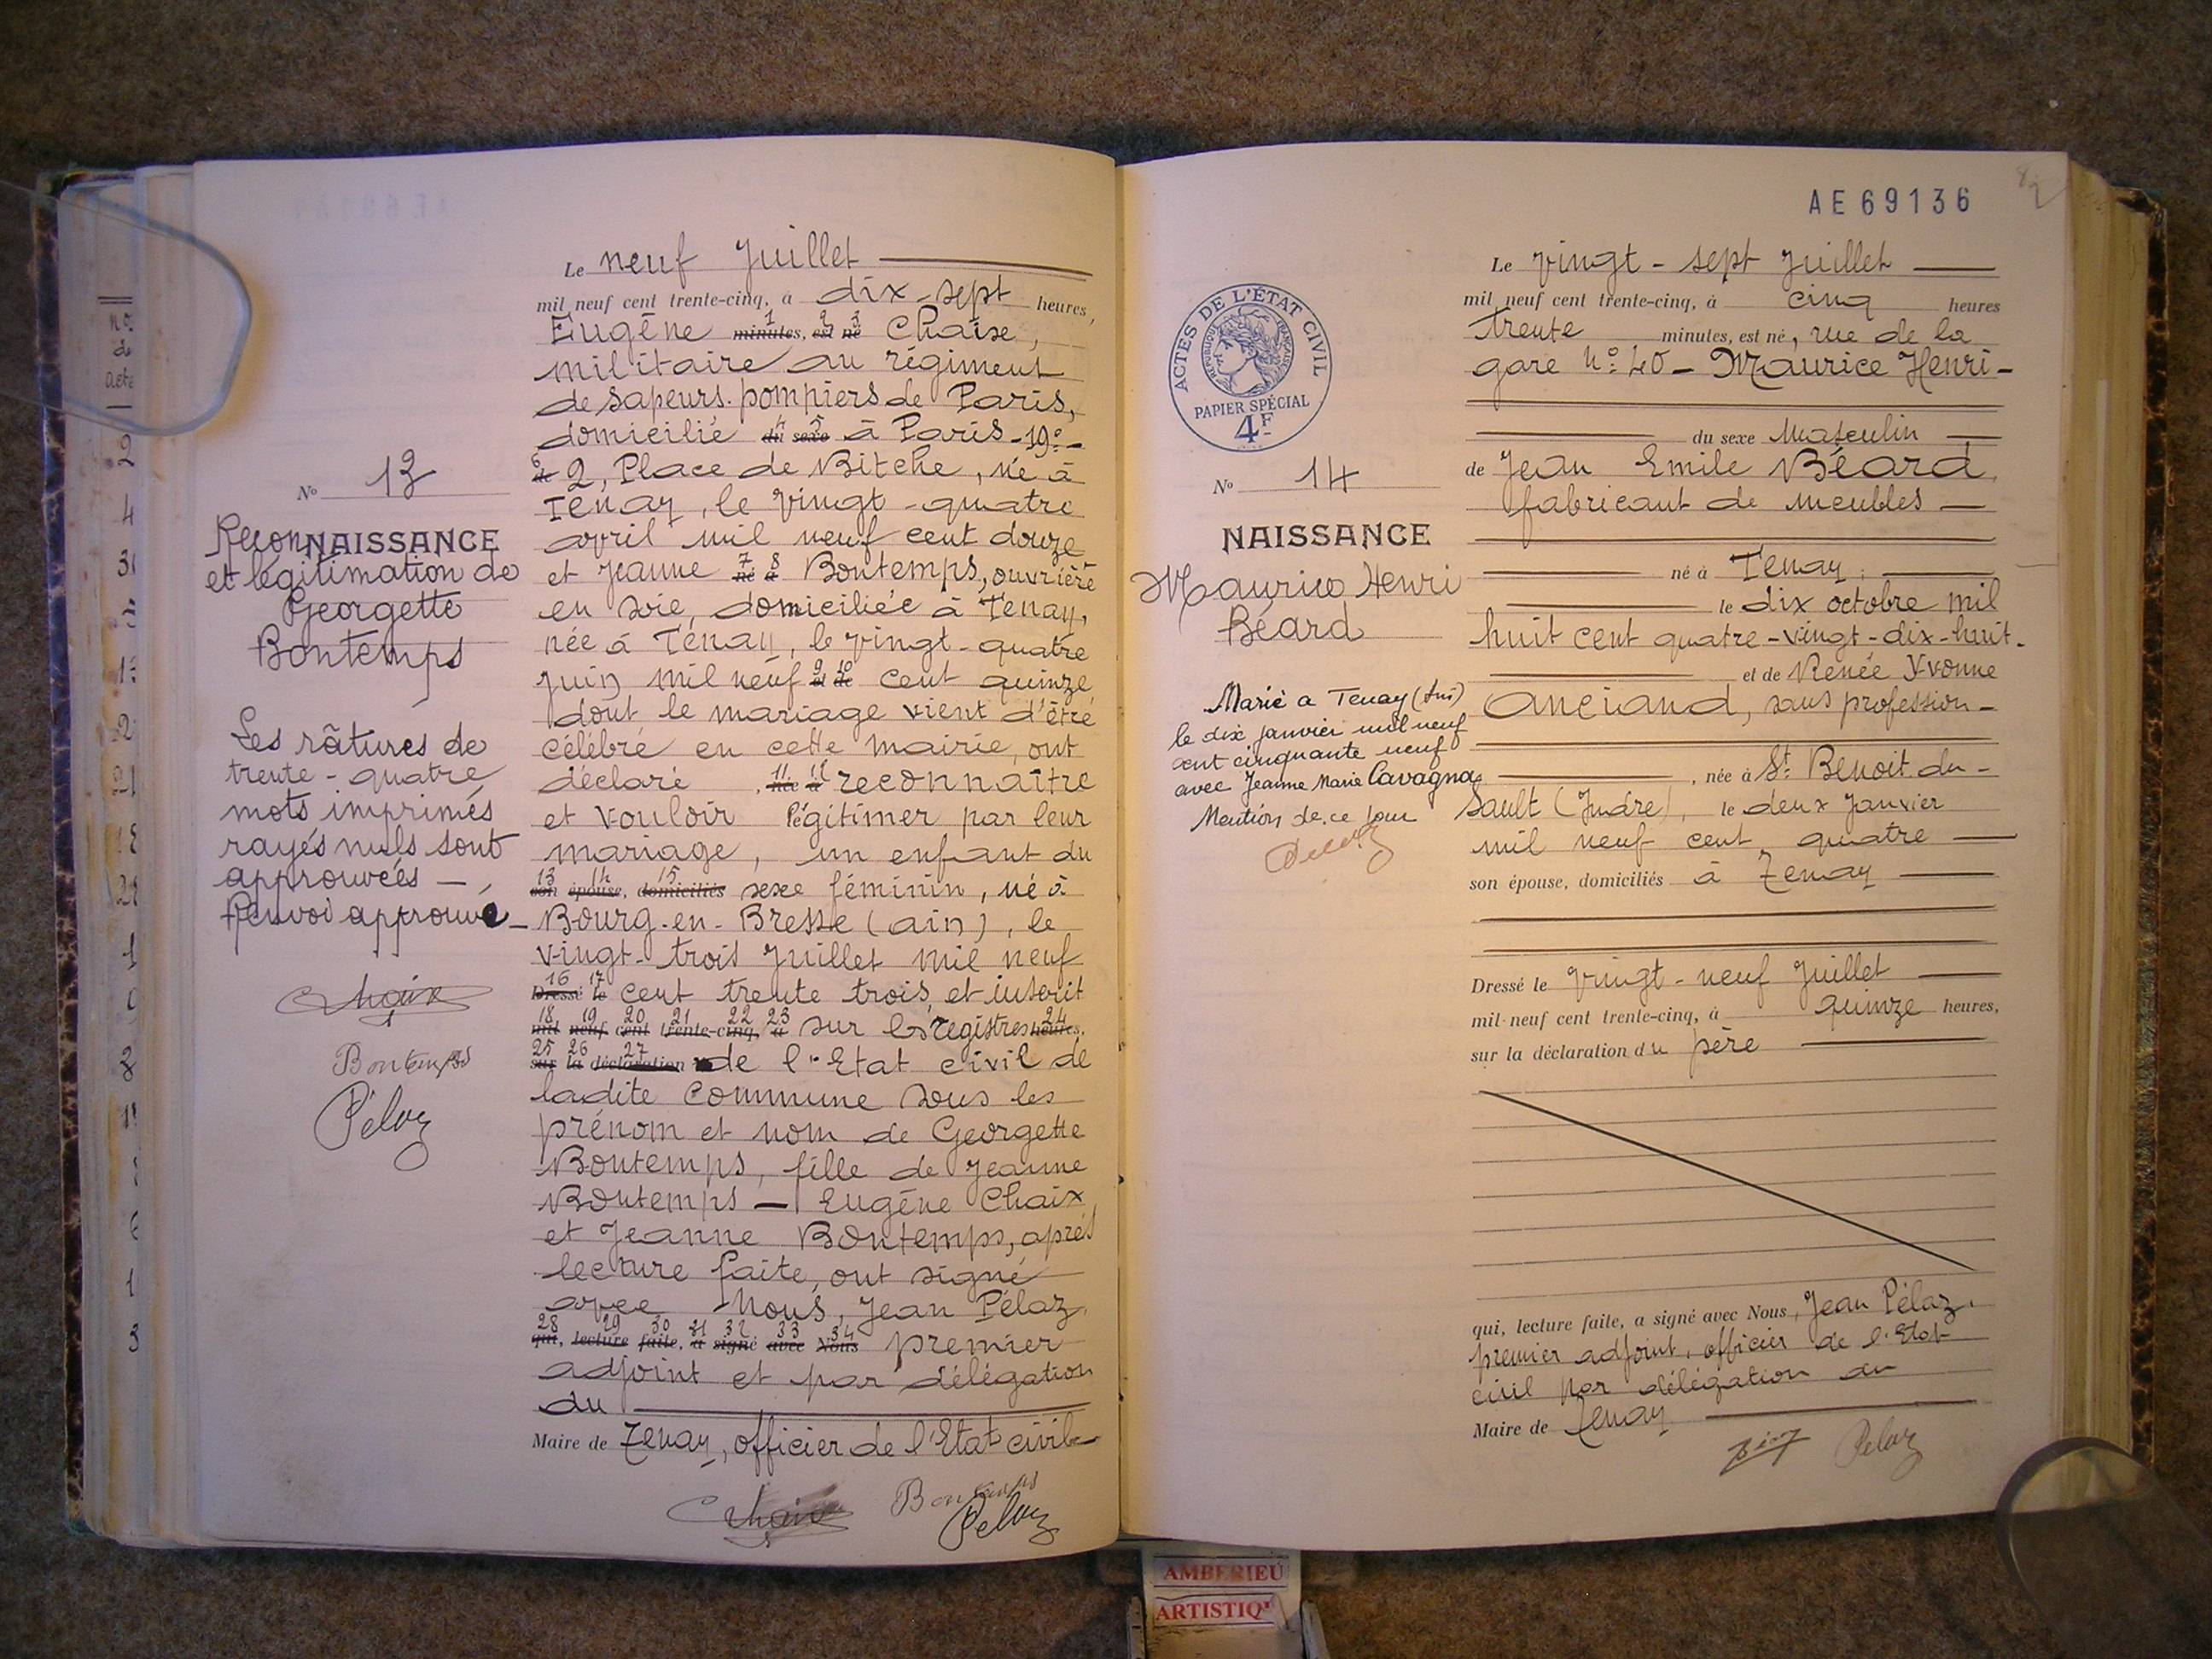 Le neuf Juillet
mil neuf cent trente-cinq, à dix-sept heures,
Eugène minutes, est né Chaise,
militaire au régiment
de sapeurs-pompiers de Paris,
domicilié du sexe à Paris-19e-
de 2, Place de Bitche, né à
Tenay, le vingt-quatre
avril mil neuf cent douze
et Jeanne né à Bontemps, ouvrière
en soie, domiciliée à Tenay,
née à Tenay, le vingt-quatre
juin mil neuf et de cent quinze
dont le mariage vient d'être
célébré en cette mairie, ont
déclaré , née à reconnaître
et vouloir légitimer par leur
mariage, un enfant du
son épouse, domiciliés sexe féminin, né à
Bourg-en-Bresse (ain), le
vingt-trois Juillet mil neuf
Dressé le cent trente trois, et inscrit
mil neuf cent trente-cinq, à sur les registres heures,
sur la déclaration de l'Etat civil de
ladite commune sous les
prénom et nom de Georgette
Bontemps, fille de Jeanne
Bontemps — Eugène Chaix
et Jeanne Bontemps, après
lecture faite, ont signé
avec Nous, Jean Pélaz,
qui, lecture faite, a signé avec Nous premier
adjoint et par délégation
du
Maire de Tenay, officier de l'Etat civil-
Chaix Bontemps
Pélaz
No 13
ReconNAISSANCE
et légitimation de
Georgette
Bontemps
Les râtures de
trente-quatre
mots imprimés
rayés nuls sont
approuvées —
Renvoi approuvé-
Chaix
Bontemps
Pélaz
no
de
acte
AE69136
ACTES DE L'ÉTAT CIVIL
RÉPUBLIQUE FRANÇAISE
PAPIER SPÉCIAL
4F
No 14
NAISSANCE
Maurice Henri
Béard
Marié a Tenay (Ain)
le dix janvier mil neuf
cent cinquante neuf
avec Jeanne Marie Cavagna
Mention de ce jour
Le vingt-sept Juillet
mil neuf cent trente-cinq, à cinq heures
trente minutes, est né, rue de la
gare No 40- Maurice Henri-
du sexe Masculin
de Jean Emile Béard,
fabricant de meubles —
né à Tenay,
le dix octobre mil
huit cent quatre-vingt-dix-huit.
et de Renée Yvonne
Anciand, sans profession-
, née à St Benoit-du-
Sault (Indre), le deux Janvier
mil neuf cent quatre —
son épouse, domiciliés à Tenay
Dressé le vingt-neuf Juillet
mil neuf cent trente-cinq, à quinze heures,
sur la déclaration du père
qui, lecture faite, a signé avec Nous, Jean Pélaz,
premier adjoint, officier de l'Etat
civil par délégation du
Maire de Tenay
Pélaz
AMBERIEU
ARTISTIQ